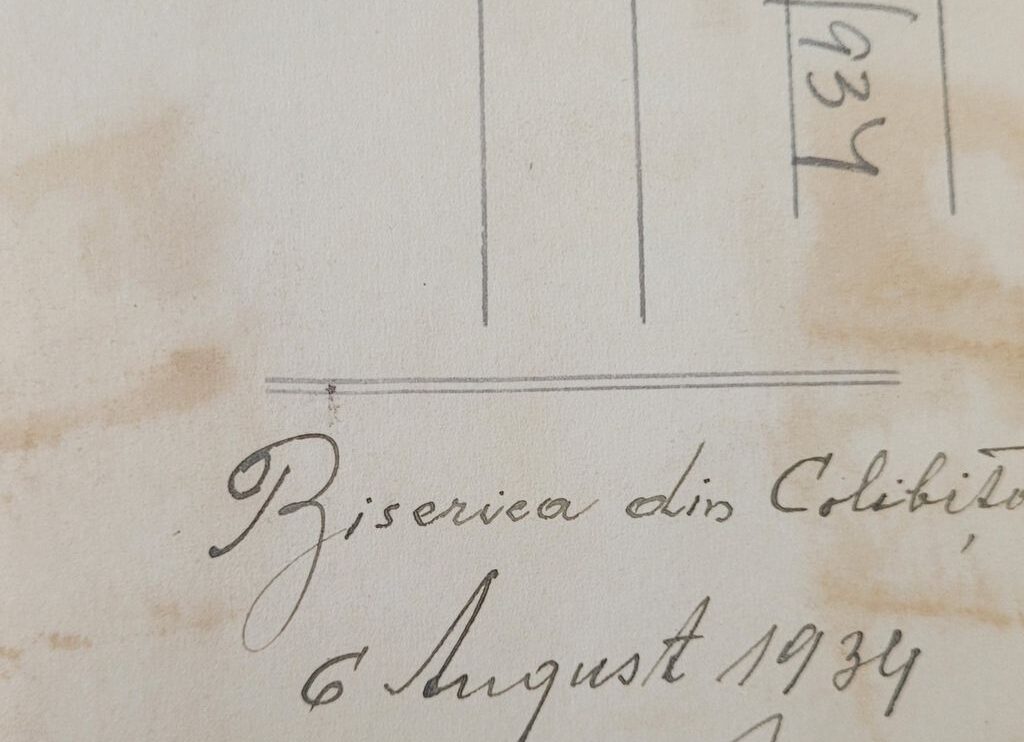 1934
Biserica din Colibița
6 August 1934